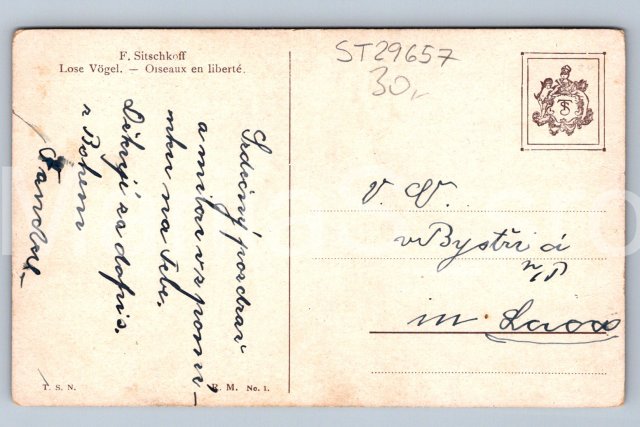 F. Sitschkoff
Lose Vögel. — Oiseaux en liberté.
ST29657
30,-
Srdečný pozdrav
a milou vzpomí-
nku na Tebe.
Děkuji za dopis.
s Bohem
V. W.
v Bystřici
n/P
T. S. N.
R. M. No. 1.
TS